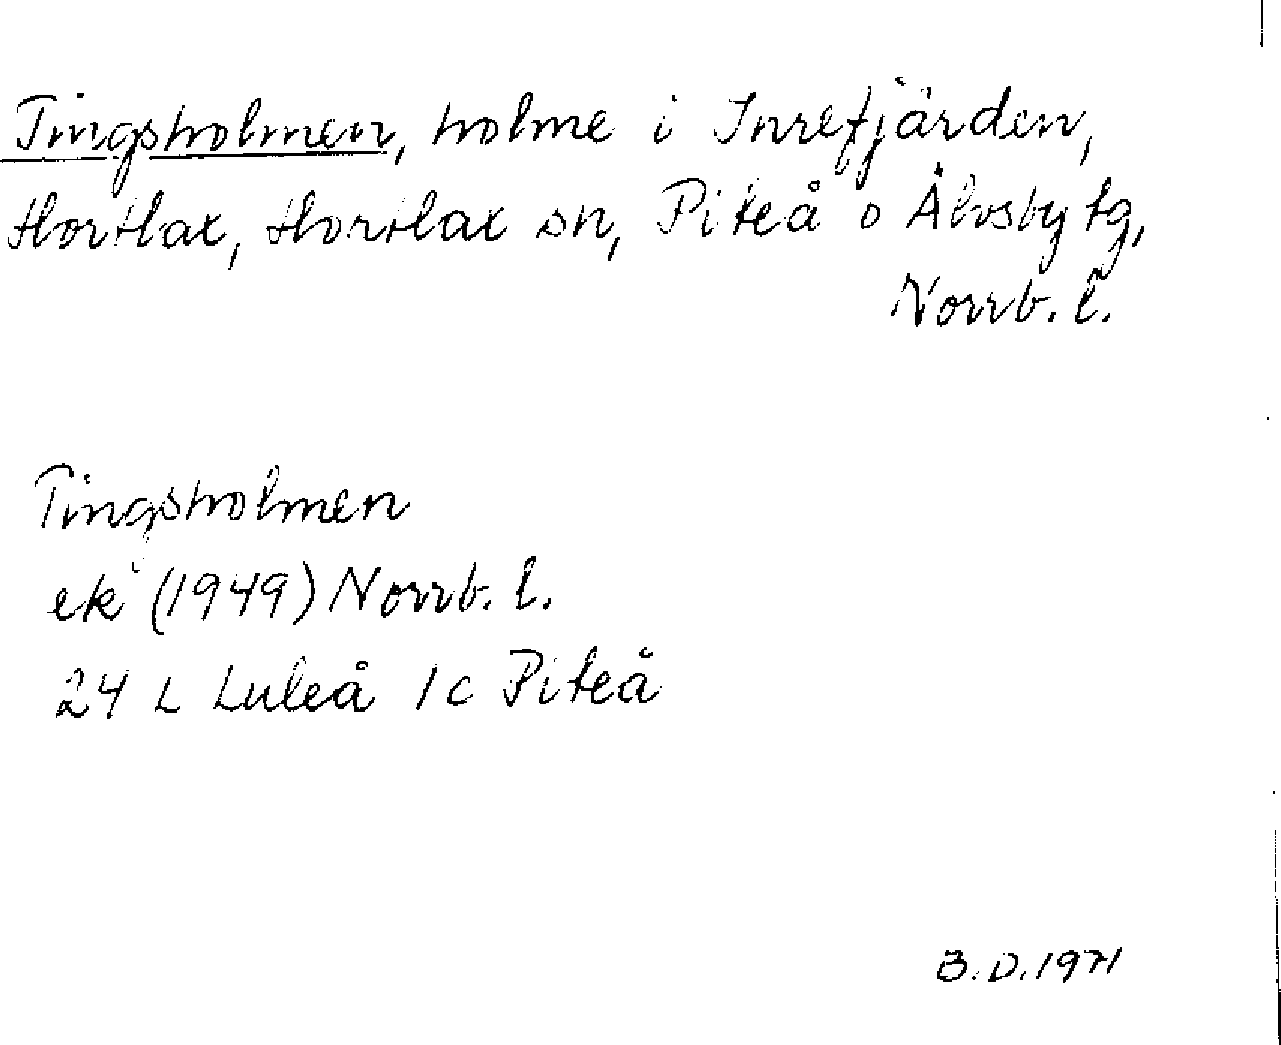 Tingsholmen, holme i Inrefjärden,
Hortlax, Hortlax sn, Piteå o Älvsby tg,
Norrb. l.
Tingsholmen
ek (1949) Norrb. l.
24 L Luleå 1c Piteå
B.D. 1971